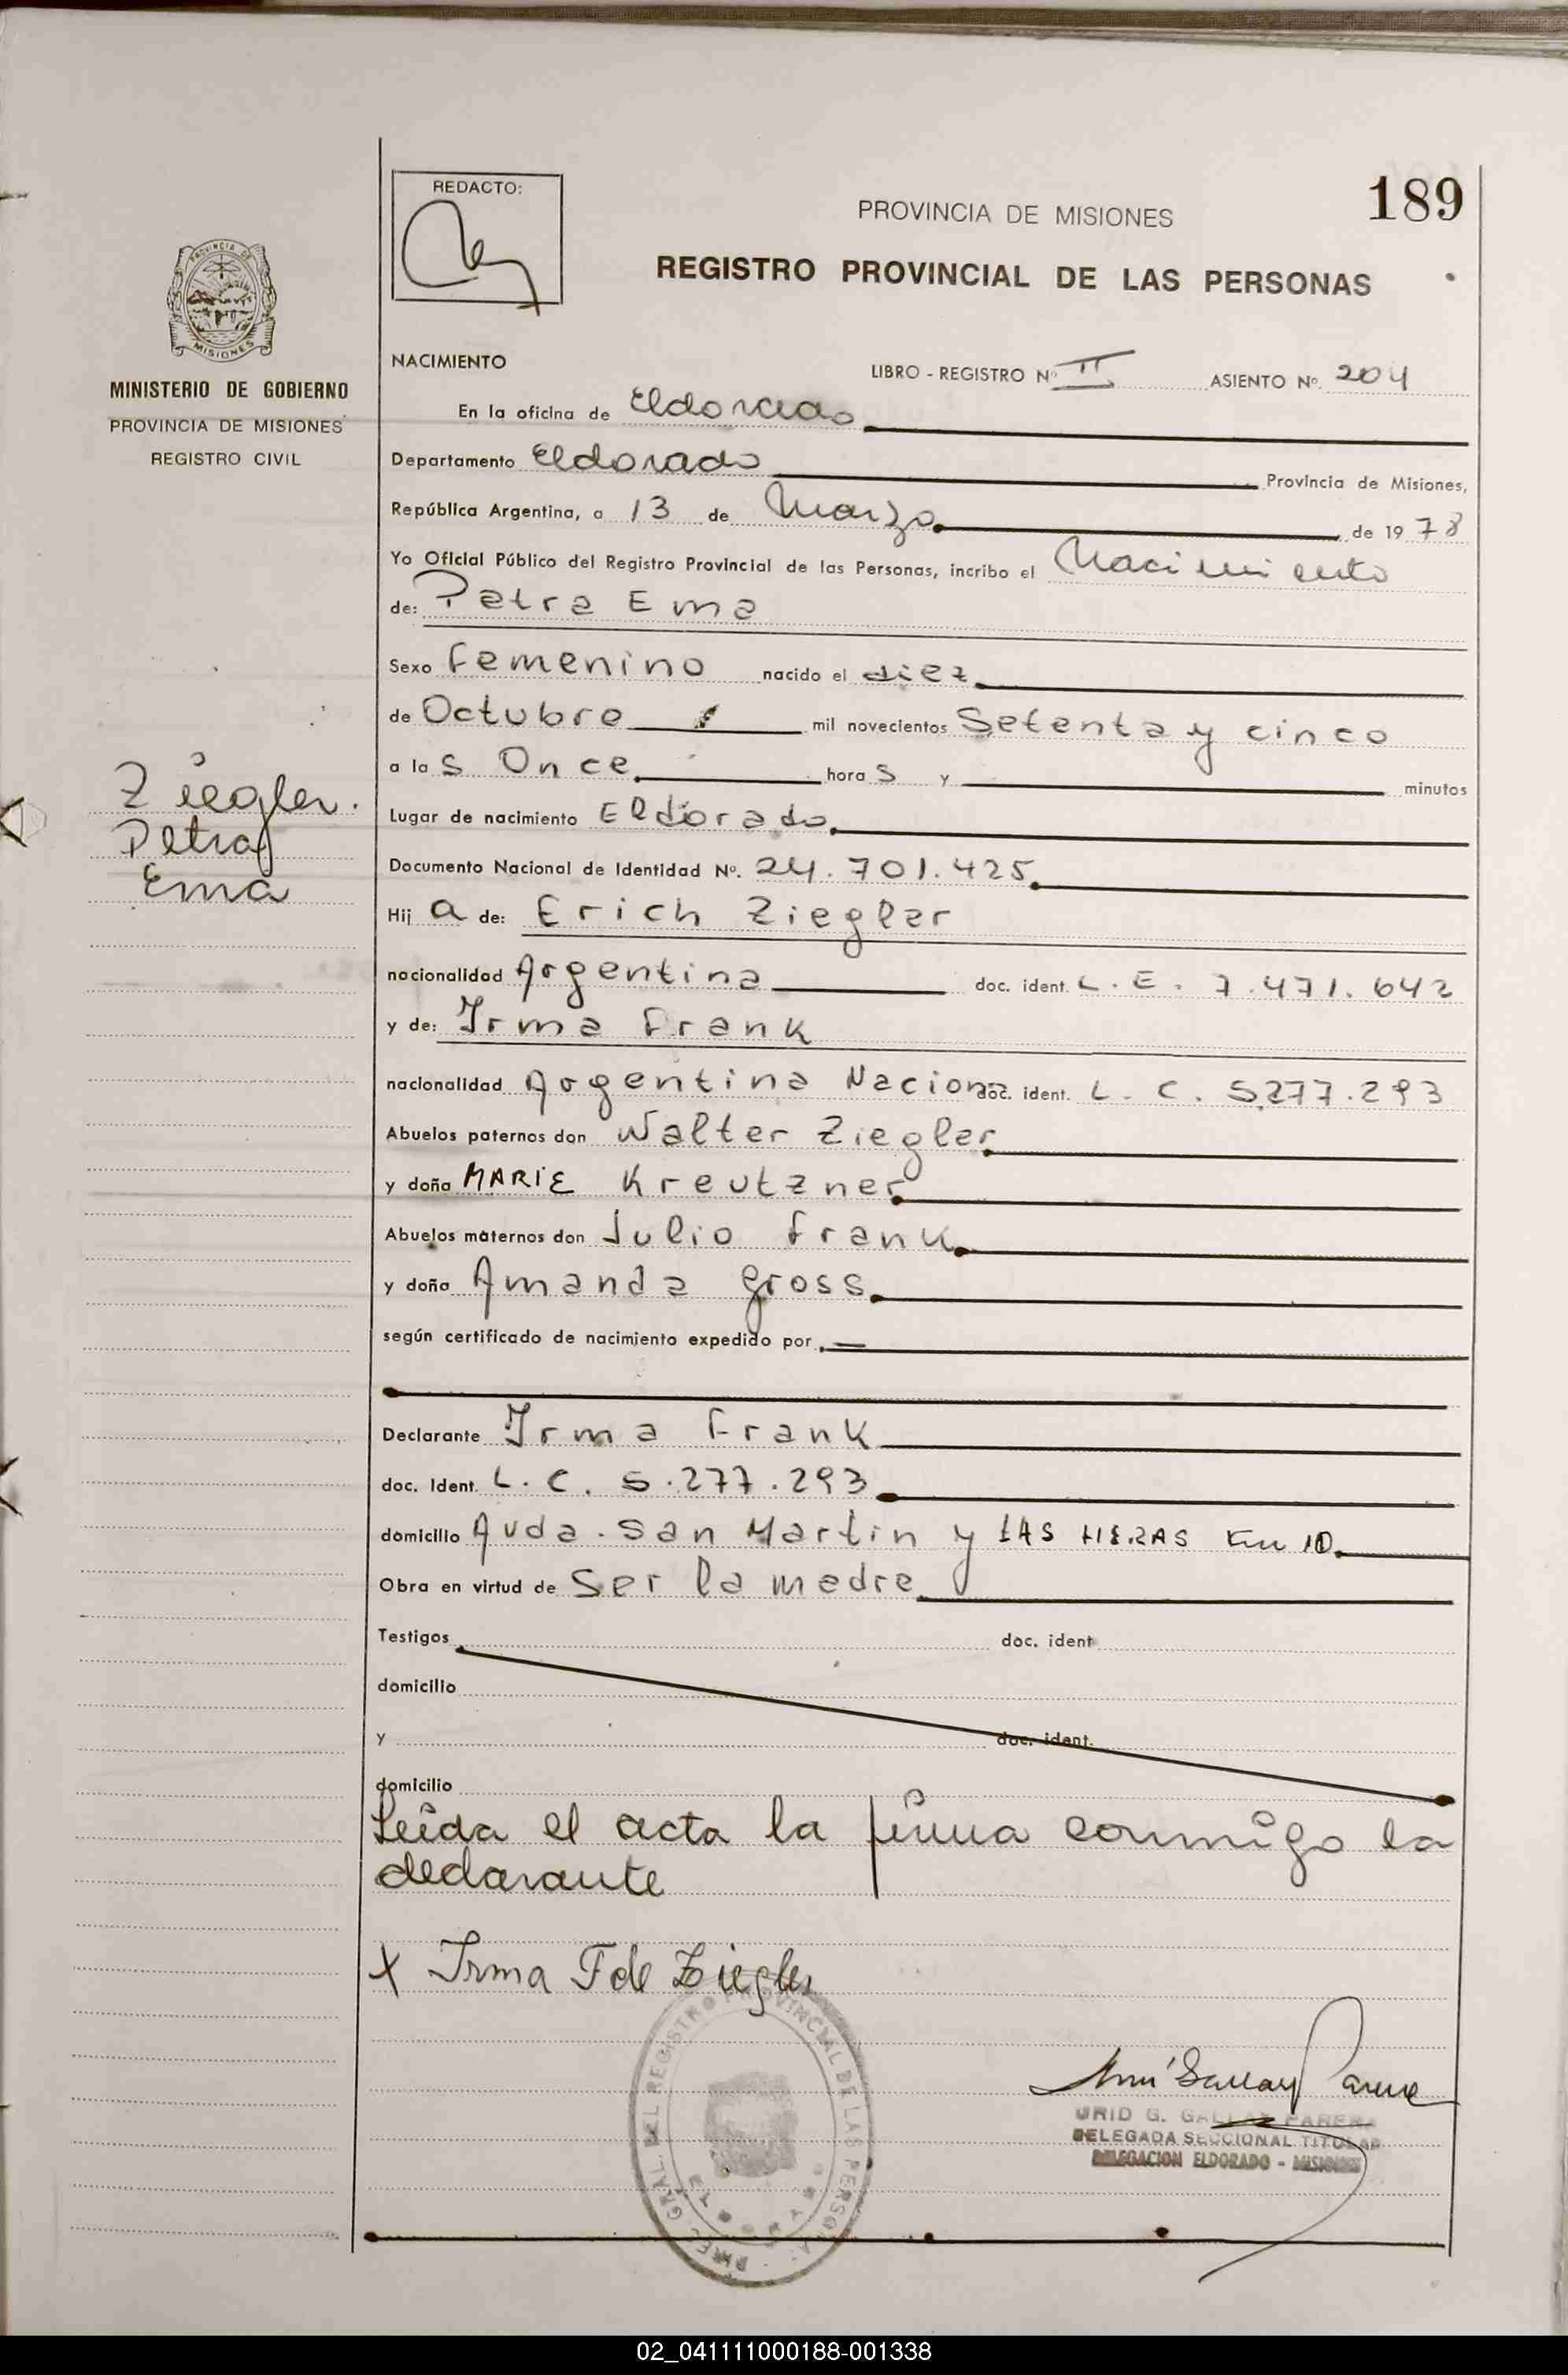 189
REDACTO:
PROVINCIA DE MISIONES
REGISTRO PROVINCIAL DE LAS PERSONAS
PROVINCIA DE
MISIONES
MINISTERIO DE GOBIERNO
PROVINCIA DE MISIONES
REGISTRO CIVIL
NACIMIENTO
LIBRO - REGISTRO Nº II ASIENTO Nº. 204
En la oficina de Eldorado
Departamento Eldorado Provincia de Misiones,
República Argentina, a 13 de Marzo de 1978
Yo Oficial Público del Registro Provincial de las Personas, incribo el Nacimiento
de: Petra Ema
Sexo Femenino nacido el diez
de Octubre mil novecientos Setenta y cinco
a las Once horas y minutos
Ziegler.
Petra
Ema
Lugar de nacimiento Eldorado
Documento Nacional de Identidad Nº. 24.701.425
Hija de: Erich Ziegler
nacionalidad Argentina doc. ident. L. E. 7.471.642
y de: Irma Frank
nacionalidad Argentina Naciona doc. ident. L. C. 5.277.293
Abuelos paternos don Walter Ziegler
y doña MARIE Kreutzner
Abuelos maternos don Julio Frank
y doña Amanda Gross
según certificado de nacimiento expedido por
Declarante Irma Frank
doc. Ident. L. C. 5.277.293
domicilio Avda. San Martin y LAS HERAS Km 10
Obra en virtud de Ser la madre
Testigos doc. ident
domicilio
y doc. ident.
domicilio
Leida el acta la firma conmigo la
declarante
X Irma F de Ziegler
DIREC. GRAL. DEL REGISTRO PROVINCIAL DE LAS PERSONAS
URID G. GALLAY PARERA
DELEGADA SECCIONAL TITULAR
DELEGACION ELDORADO - MISIONES
02_041111000188-001338